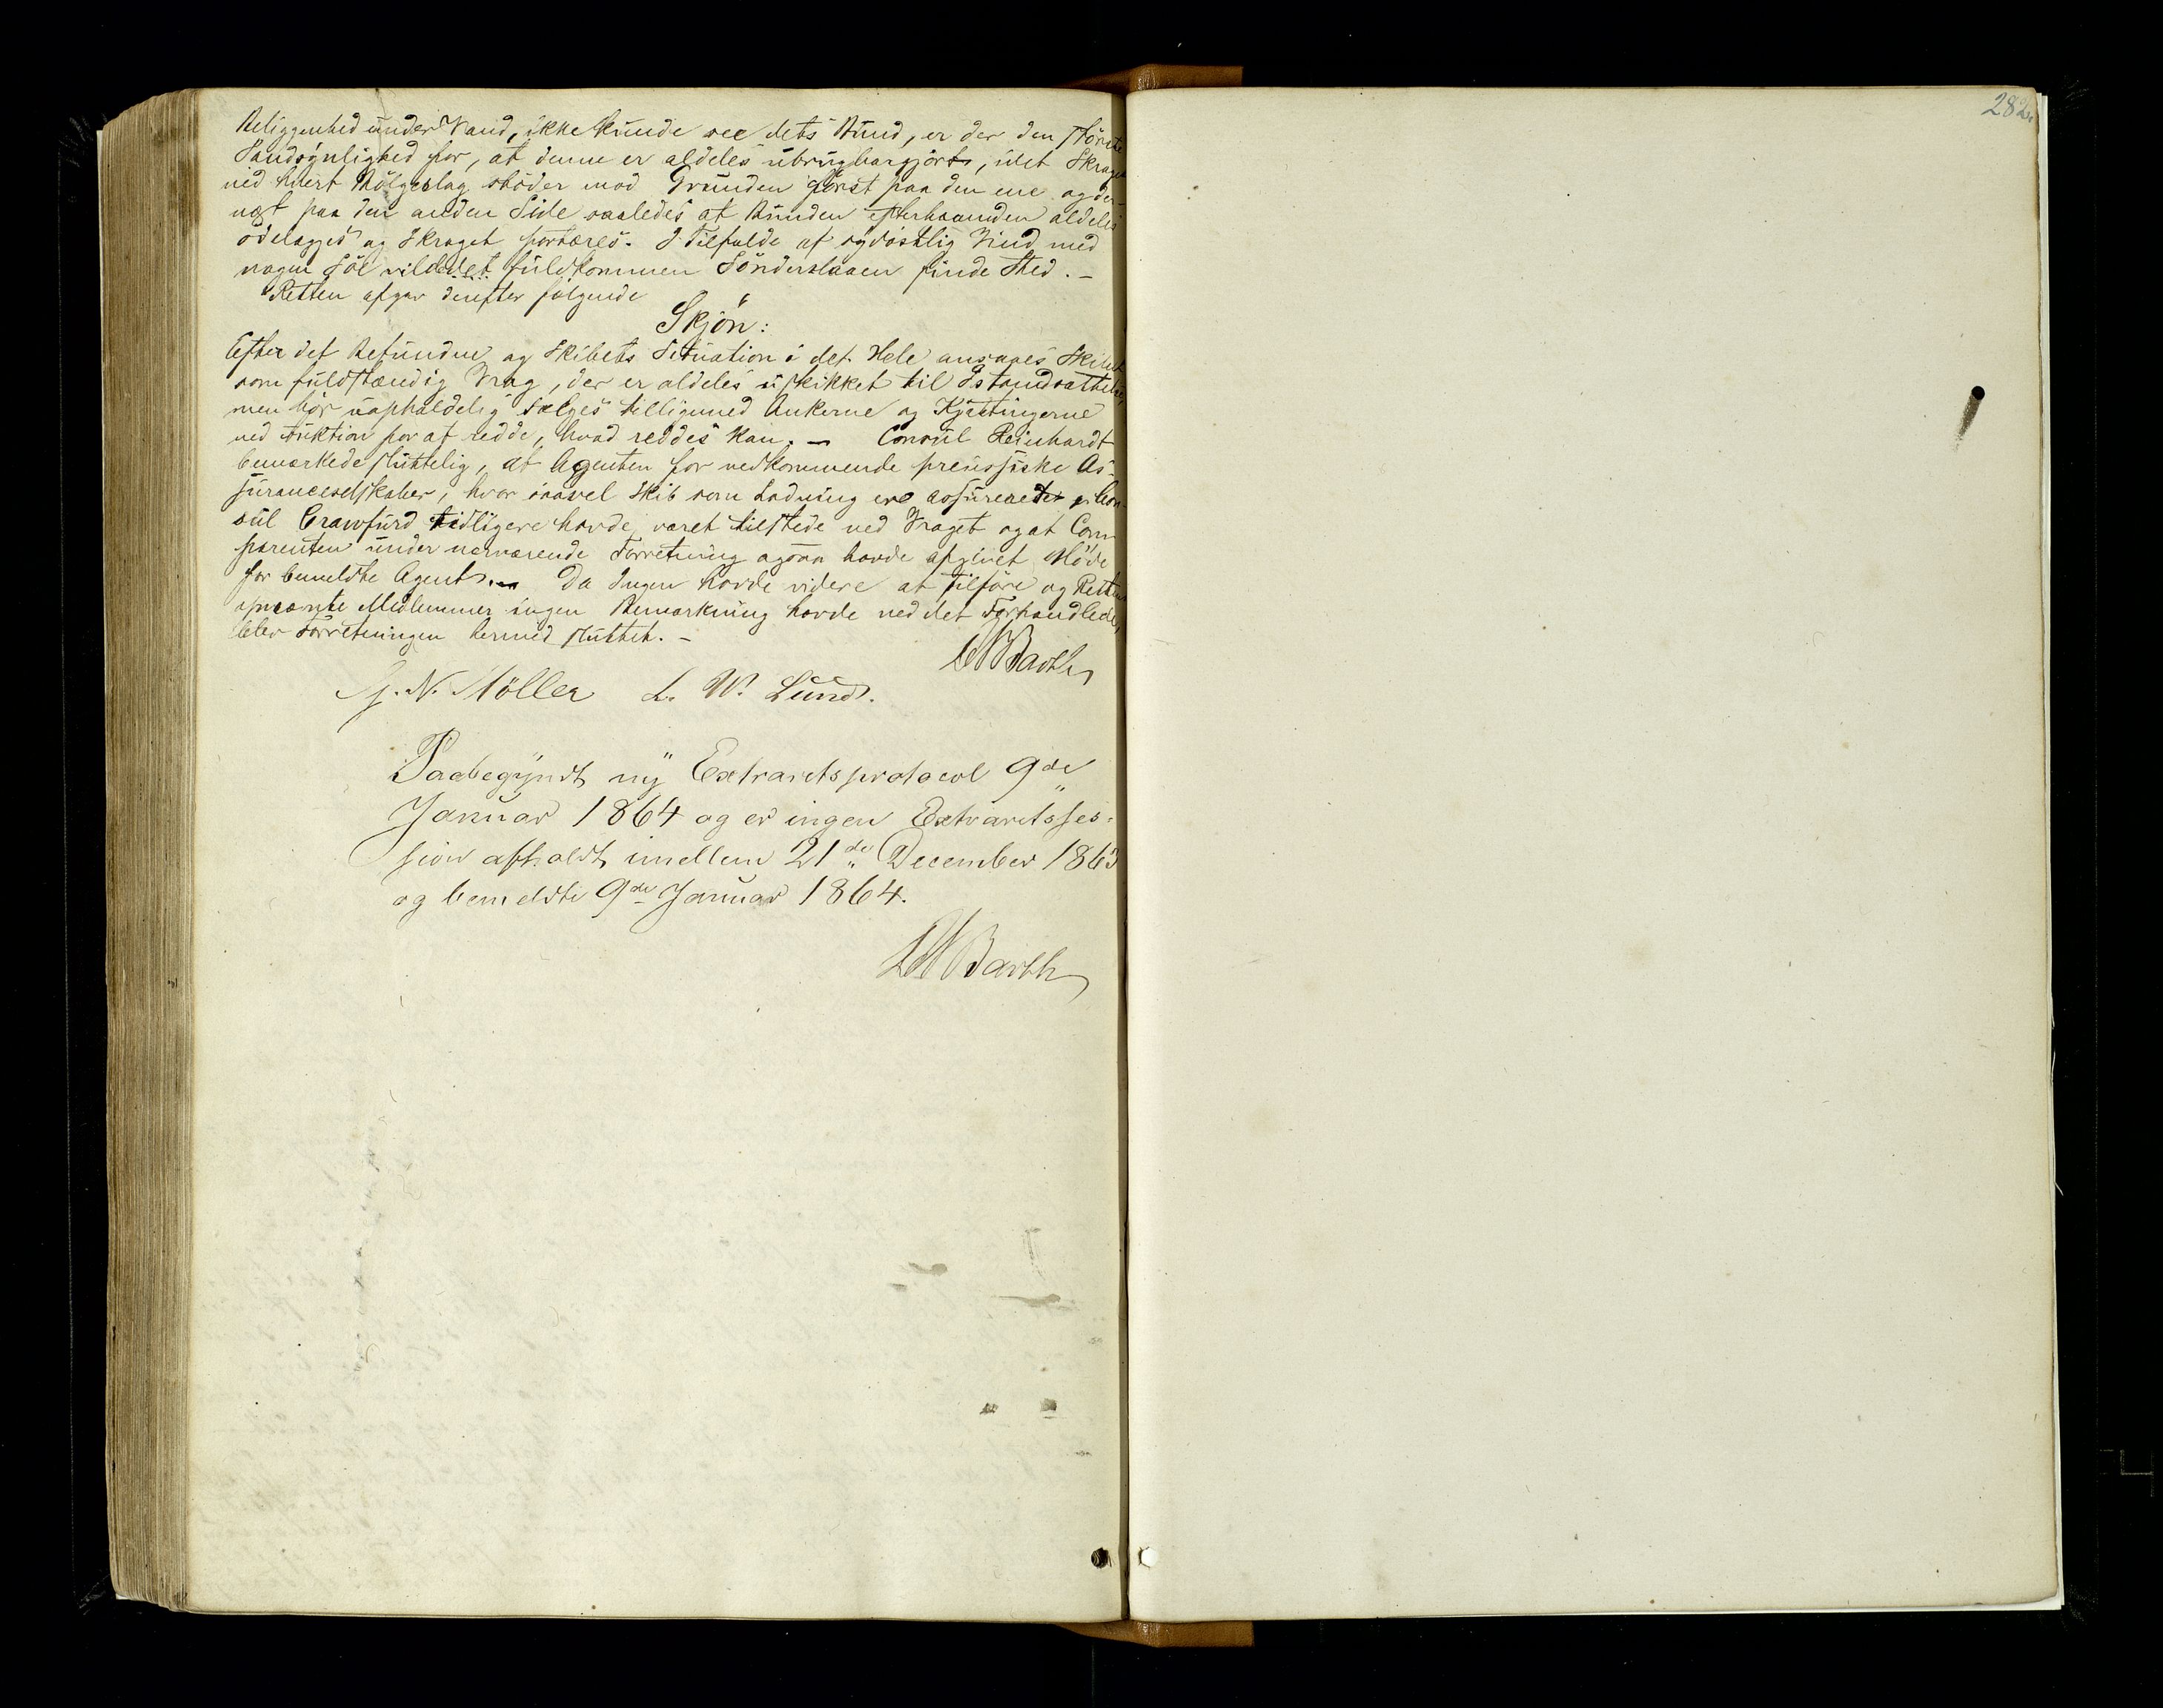 Beliggenhed under Vand, ikke kunde see dets Bund, er der den største
Sandsynlighed for, at denne er aldeles ubrugbargjort, idet Skroget
ved hvert Bölgeslag stöder mod Grunden först paa den ene og der-
næst paa den anden Side saaledes at Bunden efterhaanden aldeles
ödelægges og Skroget fortæres. I Tilfælde af sydöstlig Vind med
nogen Söe vilde det fuldkommen Sönderslaaen finde Sted. -
Retten afgav derefter følgende
Skjön:
Efter det Befundne og Skibets Situation i det Hele ansaaes Skibet
som fuldstændig Vrag, der er aldeles uskikket til Istandsættelse,
men bör uopholdelig sælges tilligemed Ankerne og Kjættingerne
ved Auktion for at redde, hvad reddes kan. - Consul Reinhardt
bemærkede sluttelig, at Agenten for vedkommende preussiske As-
suranceselskaber, hvor saavel Skib som Ladning ere assurerede, Con-
sul Crawfurd tidligere havde været tilstede ved Vraget og at Com-
parenten under nærværende Forretning ogsaa havde afgivet Möde
for bemeldte Agent. - Da Ingen havde videre at tilföre og Rettens
opnævnte Medlemmer ingen Bemærkning havde ved det Forhandlede,
blev Forretningen hermed sluttet. -
Barth
G. N. Möller L. W. Lund.
Paabegyndt ny Extraretsprotocol 9de
Januar 1864 og er ingen Extraretsses-
sion afholdt imellem 21de December 1863
og bemeldte 9de Januar 1864.
Barth
282